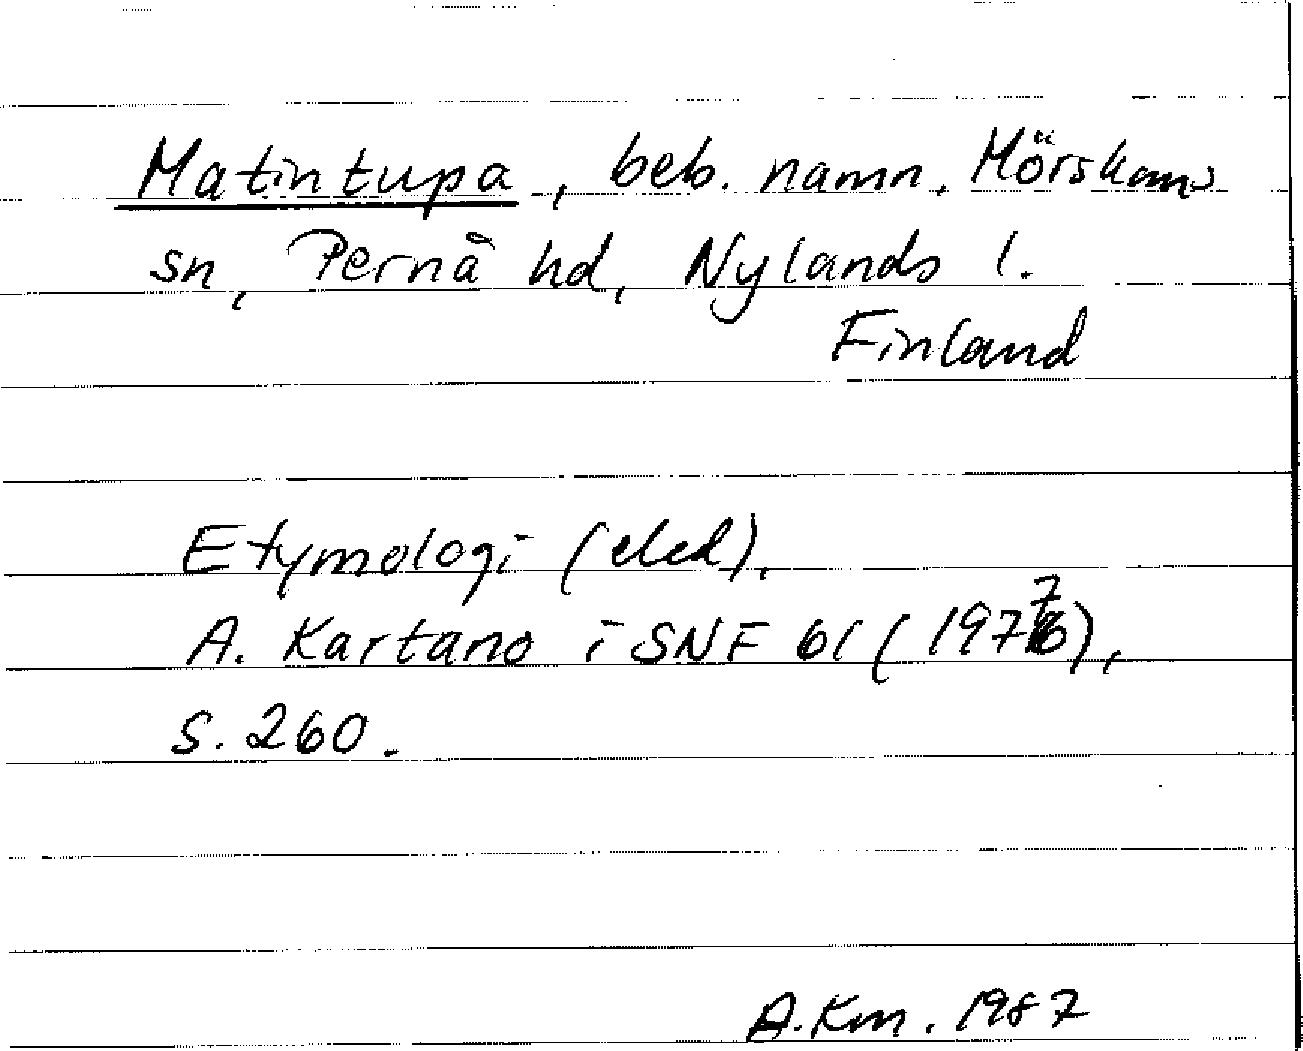 Matintupa, beb. namn, Mörskoms
sn, Pernå hd, Nylands l.
Finland
Etymologi (eled).
A. Kartano i SNF 61 (1977),
s. 260.
A.Km. 1987